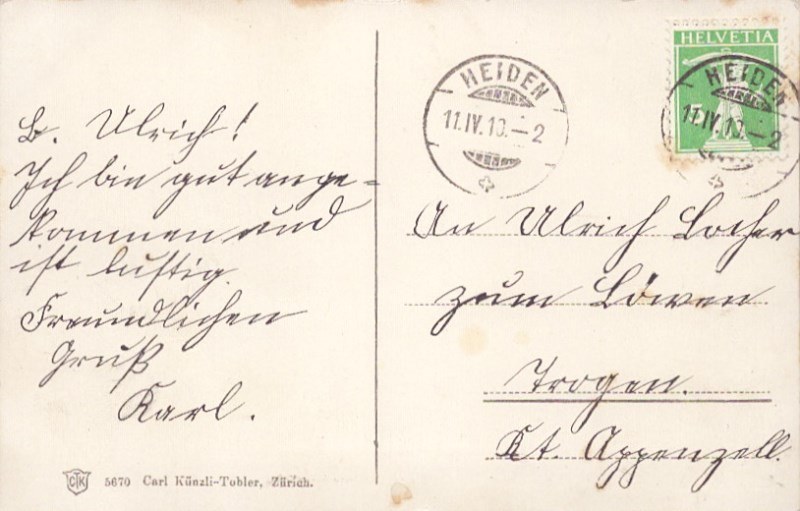 L. Ulrich!
Ich bin gut ange-
kommen und
ist lustig.
Freundlichen
Gruß
Karl.
CTK 5670 Carl Künzli-Tobler, Zürich.
HELVETIA
HEIDEN
11.IV.10.–2
HEIDEN
11.IV.10.–2
An Ulrich Locher
zum Löwen
Trogen.
Kt. Appenzell.